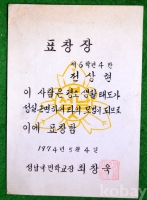 표창장
제6학년4반
전상현
이 사람은 평소 생활 태도가
성실근면하여 타의 모범이 되므로
이에 표창함
1974년 5월 4일
성남국민학교장 최창욱
kobay